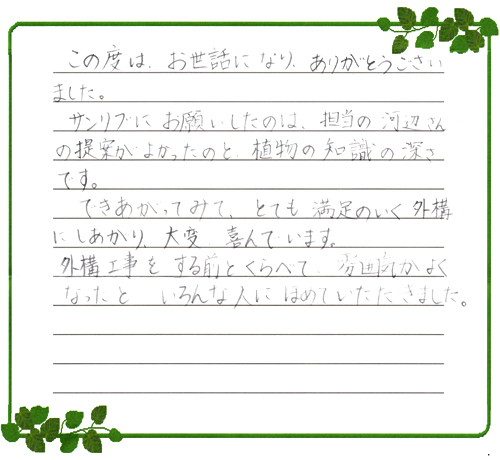 この度は、お世話になり、ありがとうござい
ました。
サンリブに お願いしたのは、担当の 河辺さん
の提案が よかったのと、植物の知識の深さ
です。
できあがってみて、とても 満足のいく 外構
にしあがり、大変 喜んでいます。
外構工事を する前と くらべて、雰囲気がよく
なったと いろんな人に ほめていただきました。